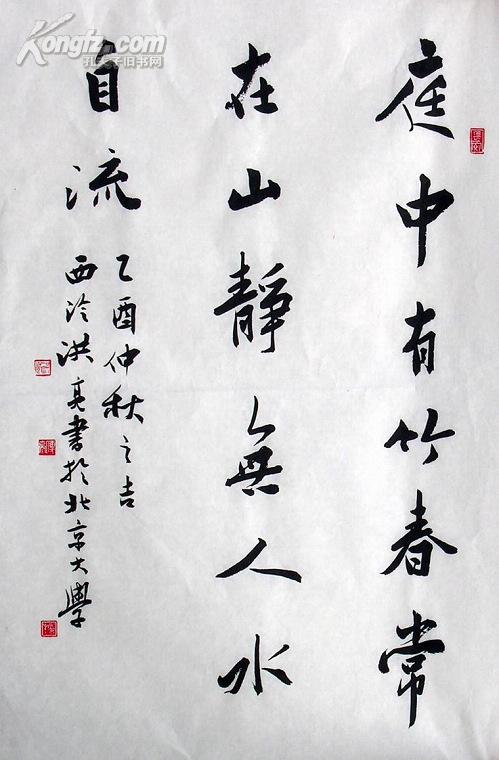 庭中有竹春常
在山靜無人水
自流
乙酉仲秋之吉
西泠洪亮書於北京大學
Kongfz.com
孔夫子旧书网